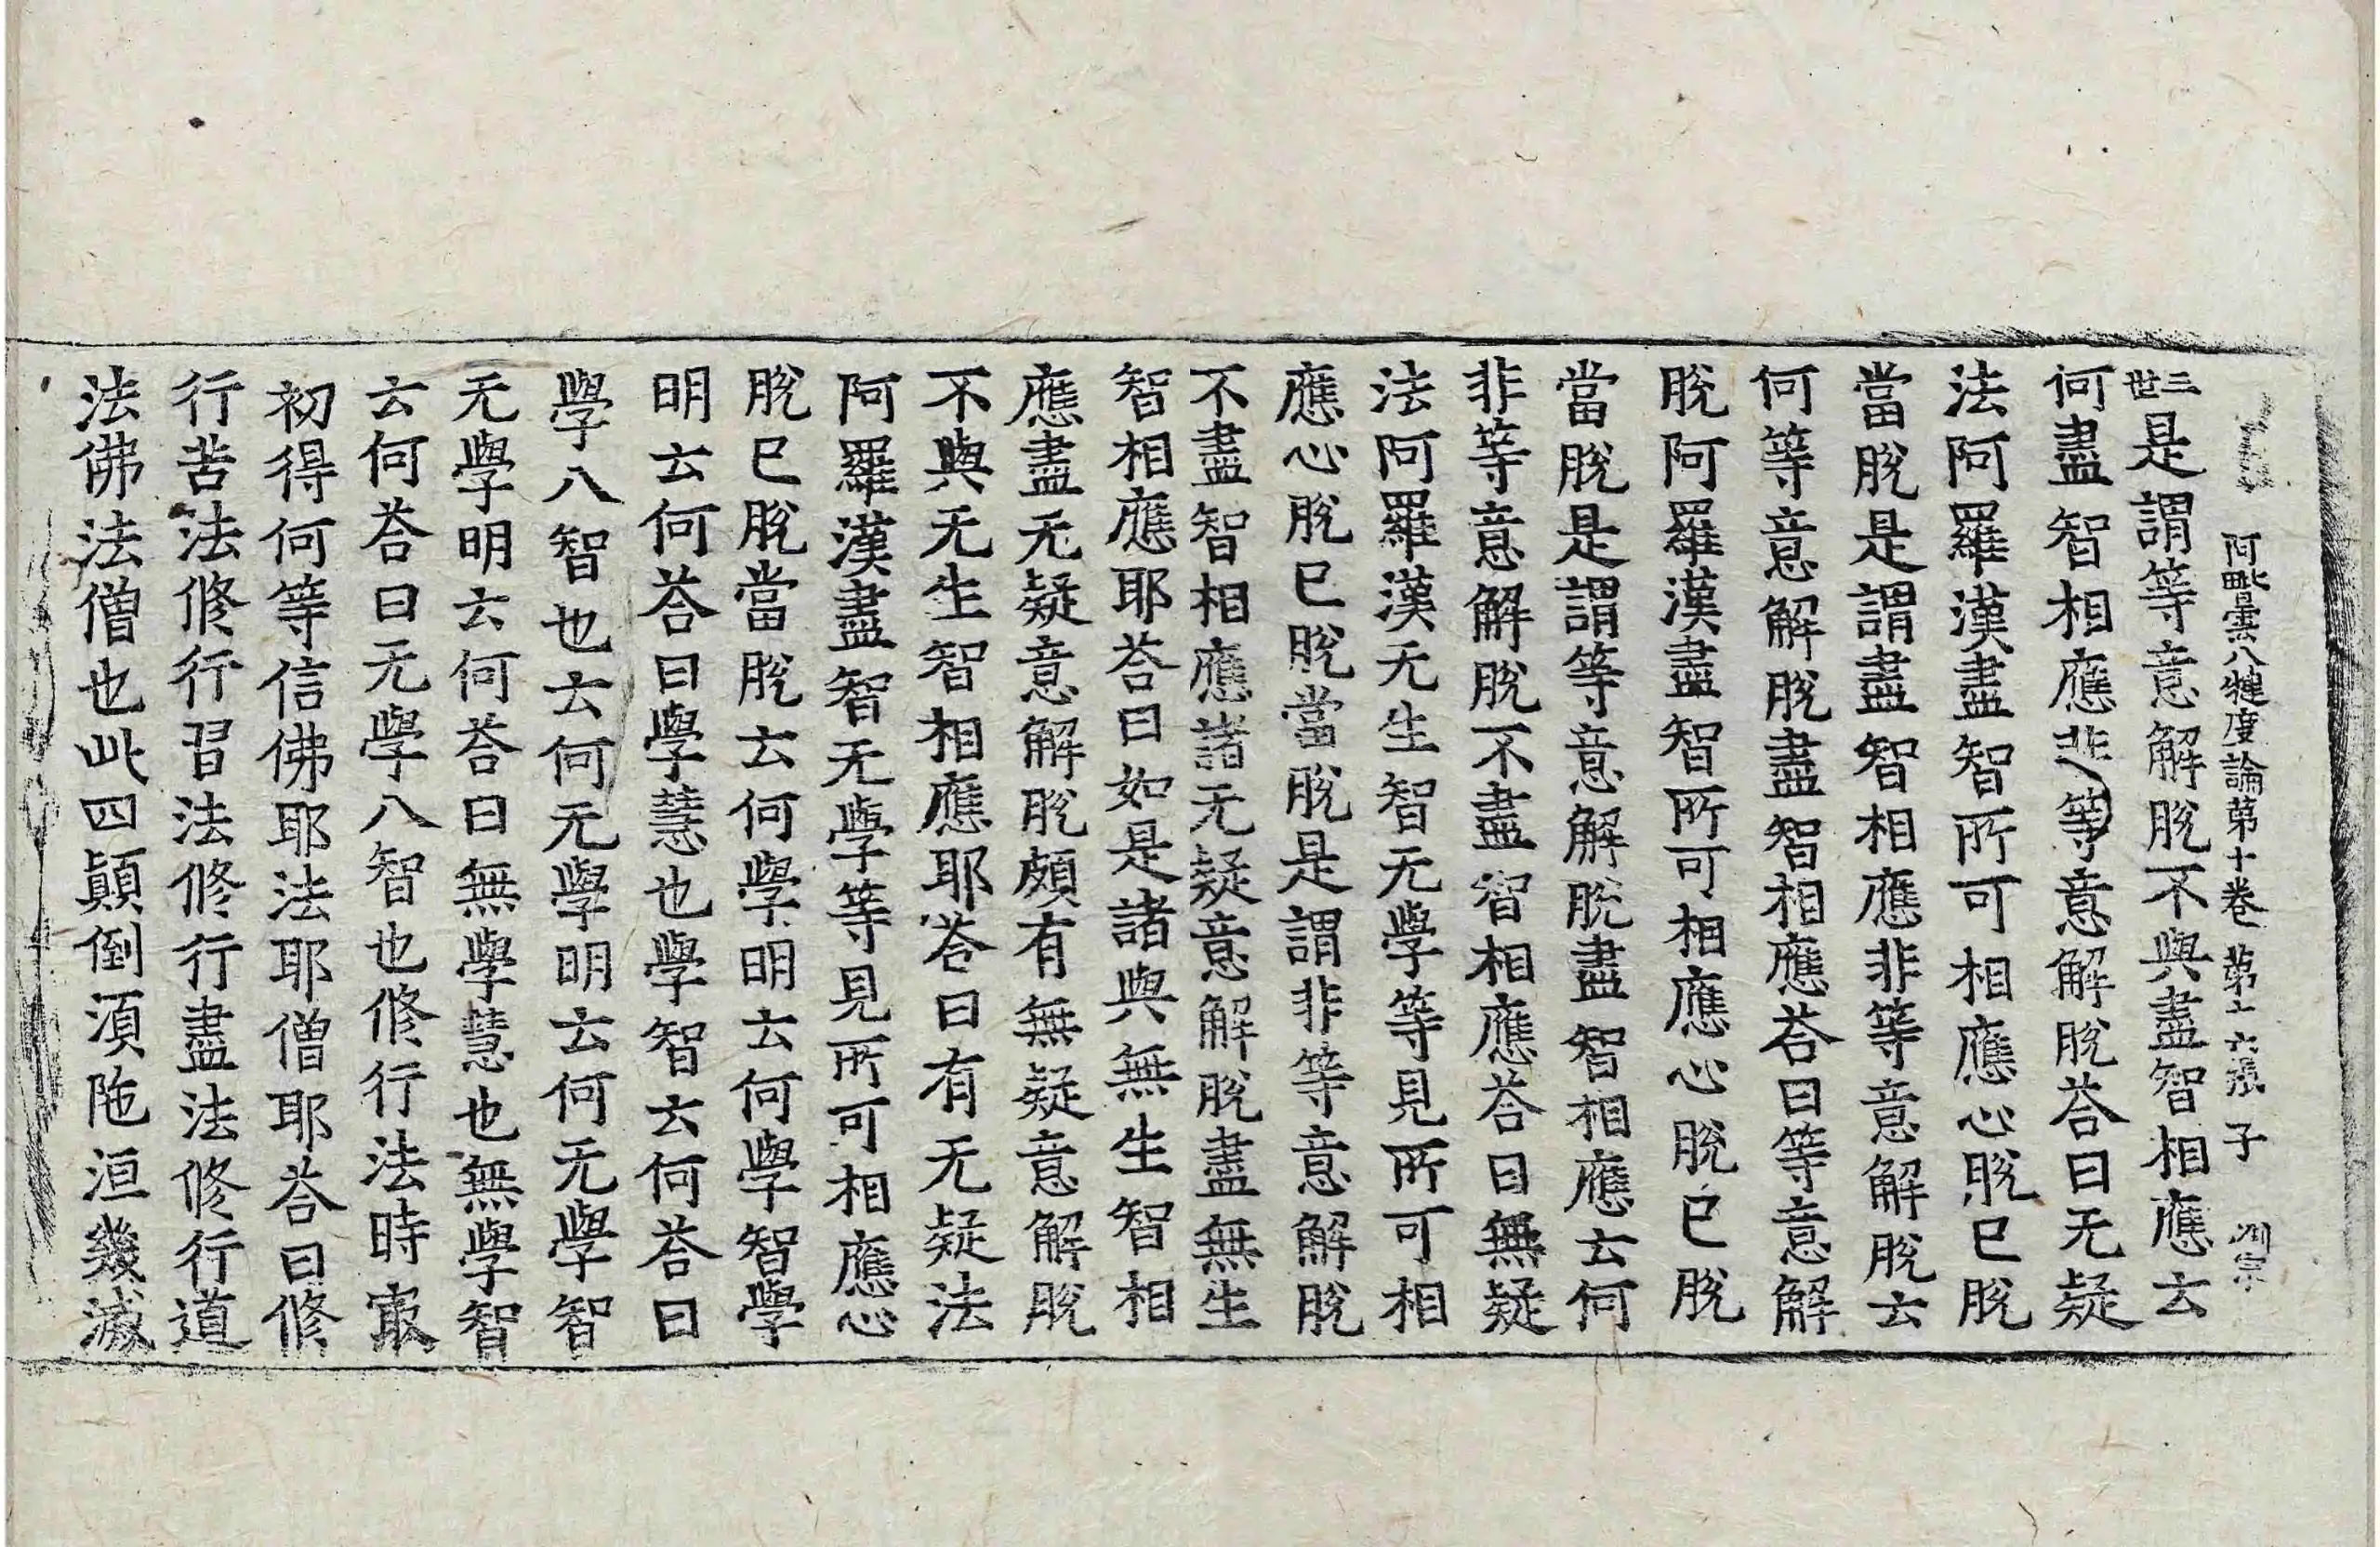 阿毗曇八犍度論第十卷 第十六張 子
三世是謂等意解脫不與盡智相應云
何盡智相應非等意解脫荅曰无疑
法阿羅漢盡智所可相應心脫已脫
當脫是謂盡智相應非等意解脫云
何等意解脫盡智相應荅曰等意解
脫阿羅漢盡智所可相應心脫已脫
當脫是謂等意解脫盡智相應云何
非等意解脫不盡智相應荅曰無疑
法阿羅漢无生智无學等見所可相
應心脫已脫當脫是謂非等意解脫
不盡智相應諸无疑意解脫盡無生
智相應耶荅曰如是諸與無生智相
應盡无疑意解脫頗有無疑意解脫
不與无生智相應耶荅曰有无疑法
阿羅漢盡智无學等見所可相應心
脫已脫當脫云何學明云何學智學
明云何荅曰學慧也學智云何荅曰
學八智也云何无學明云何无學智
无學明云何荅曰無學慧也無學智
云何荅曰无學八智也修行法時㝡
初得何等信佛耶法耶僧耶荅曰修
行苦法修行習法修行盡法修行道
法佛法法僧也此四顛倒湏陁洹幾滅